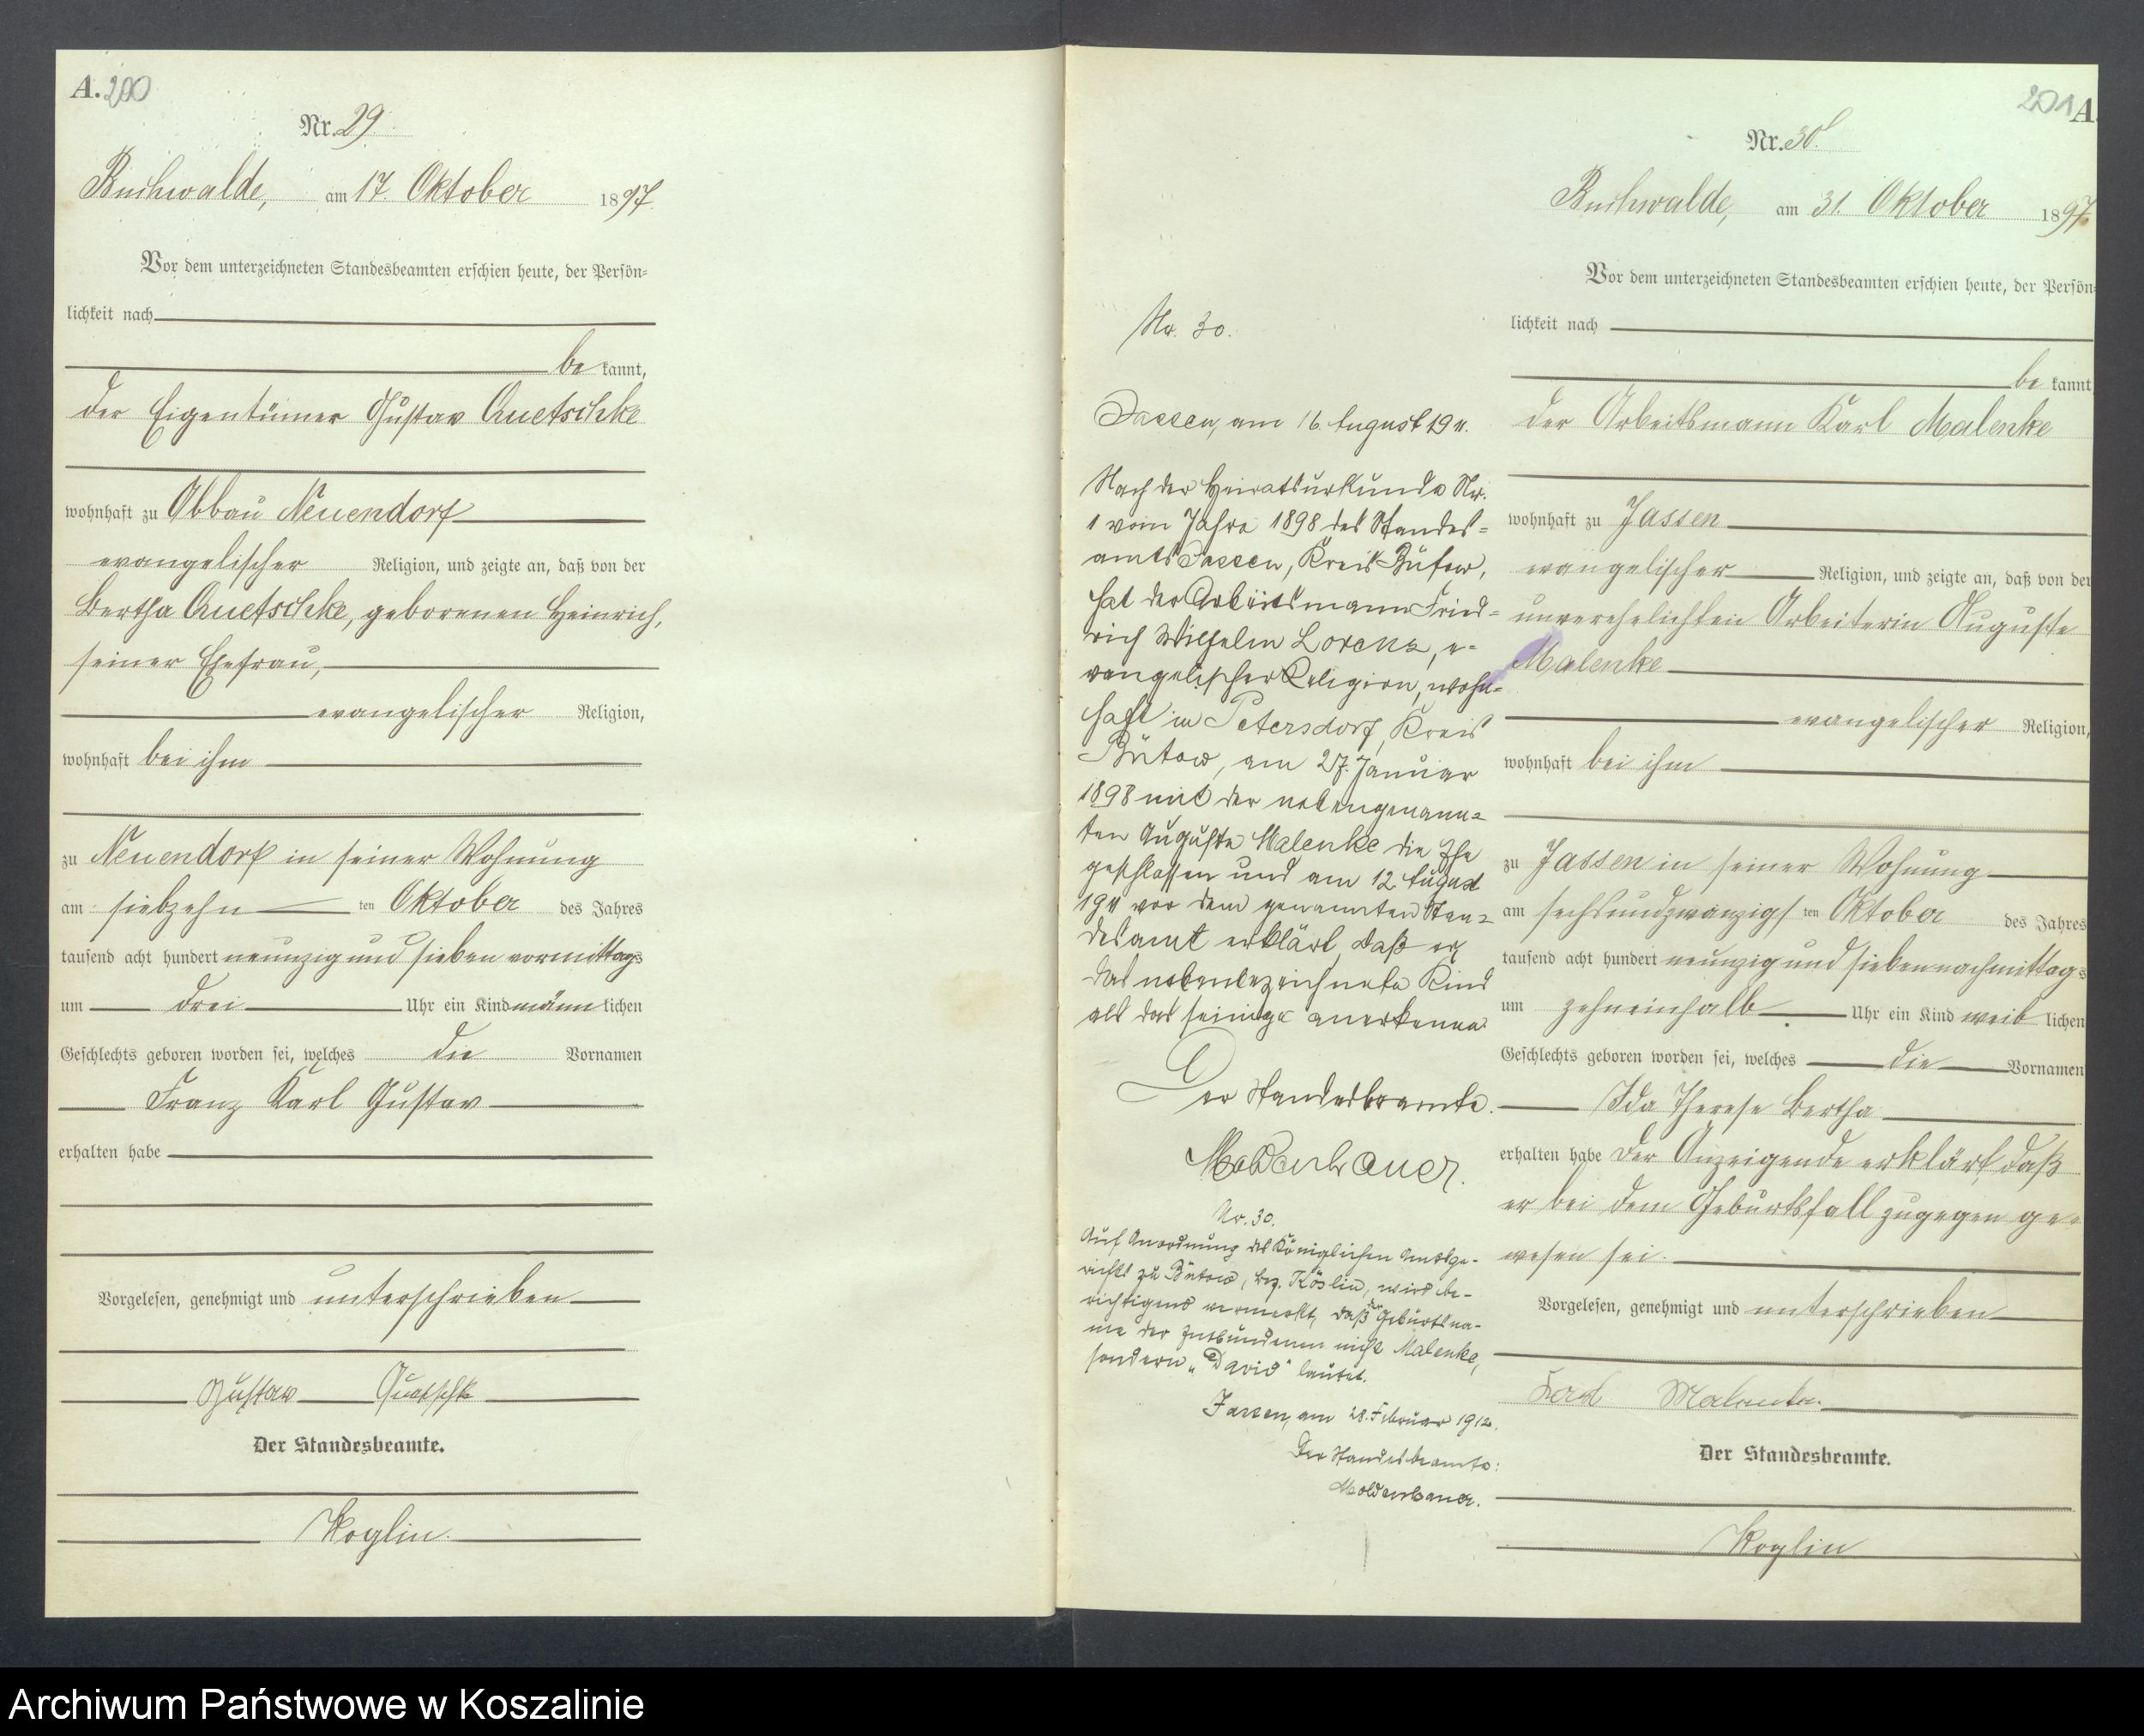 A. 200
Nr. 29.
Buchwalde, am 17. Oktober 1897.
Vor dem unterzeichneten Standesbeamten erschien heute, der Persön=
lichkeit nach
be kannt,
der Eigentümer Gustav Quetschke
wohnhaft zu Abbau Neuendorf
evangelischer Religion, und zeigte an, daß von der
Bertha Quetschke, geborenen Heinrich,
seiner Ehefrau,
evangelischer Religion,
wohnhaft bei ihm
zu Neuendorf in seiner Wohnung
am siebzehn ten Oktober des Jahres
tausend acht hundert neunzig und sieben vormittags
um drei Uhr ein Kind männlichen
Geschlechts geboren worden sei, welches die Vornamen
Franz Karl Gustav
erhalten habe
Vorgelesen, genehmigt und unterschrieben
Gustav Quetschke
Der Standesbeamte.
Koglin.
Nr. 30.
Jassen, am 16. August 1911.
Nach der Heiratsurkunde Nr.
1 vom Jahre 1898 des Standes=
amts Jassen, Kreis Bütow,
hat der Arbeitsmann Fried=
rich Wilhelm Lorenz, e=
vangelischer Religion, wohn=
haft in Petersdorf, Kreis
Bütow, am 27. Januar
1898 mit der nebengenann=
ten Auguste Malenke die Ehe
geschlossen und am 12. August
1911 vor dem genannten Stan=
desamt erklärt, daß er
das nebenbezeichnete Kind
als das seinige anerkenne.
Der Standesbeamte.
Moldenhauer.
Nr. 30.
Auf Anordnung des Königlichen Amtsge-
richts zu Bütow, Bez. Köslin, wird be-
richtigend vermerkt, daß der Geburtsna-
me der Entbundenen nicht Malenke,
sondern „David“ lautet.
Jassen, am 28. Februar 1912.
Der Standesbeamte:
Moldenhauer.
201 A.
Nr. 30.
Buchwalde, am 31. Oktober 1897.
Vor dem unterzeichneten Standesbeamten erschien heute, der Persön=
lichkeit nach
be kannt
der Arbeitsmann Karl Malenke
wohnhaft zu Jassen
evangelischer Religion, und zeigte an, daß von der
unverehelichten Arbeiterin Auguste
Malenke
evangelischer Religion,
wohnhaft bei ihm
zu Jassen in seiner Wohnung
am sechsundzwanzigs ten Oktober des Jahres
tausend acht hundert neunzig und sieben nachmittags
um zehneinhalb Uhr ein Kind weib lichen
Geschlechts geboren worden sei, welches die Vornamen
Ida Therese Bertha
erhalten habe Der Anzeigende erklärt, daß
er bei dem Geburtsfall zugegen ge=
wesen sei.
Vorgelesen, genehmigt und unterschrieben
Karl Malenke.
Der Standesbeamte.
Koglin
Archiwum Państwowe w Koszalinie